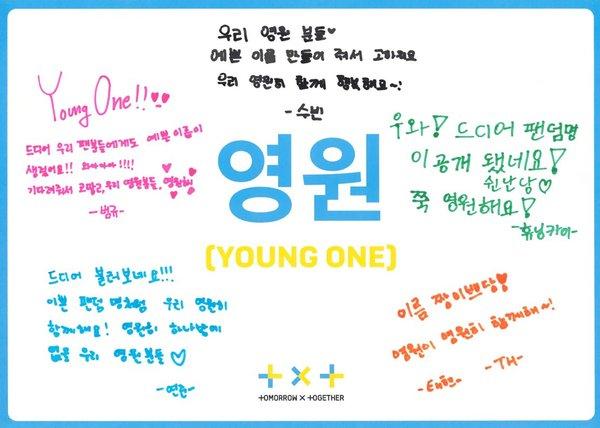 우리 영원 분들♥
예쁜 이름 만들어 줘서 고마워요
우리 영원히 함께 행복해요~!
-수빈
Young One!!♥♥
드디어 우리 팬분들에게도 예쁜이름이
생겼어요!! 와아아아!!!!
기다려줘서 고맙고, 우리 영원분들, 영원해
-범규-
우와! 드디어 팬덤명
이 공개 됐네요!
신난당♡
쭉 영원해요!
-휴닝카이-
영원
(YOUNG ONE)
드디어 불러보네요!!!
이쁜 팬덤 명처럼 우리 영원히
함께해요! 영원히 하나밖에
없을 우리 영원분들♡
-연준-
이름 짱이쁘당♥
영원이 영원히 함께해~!
-태현- -TH-
TOMORROW X TOGETHER